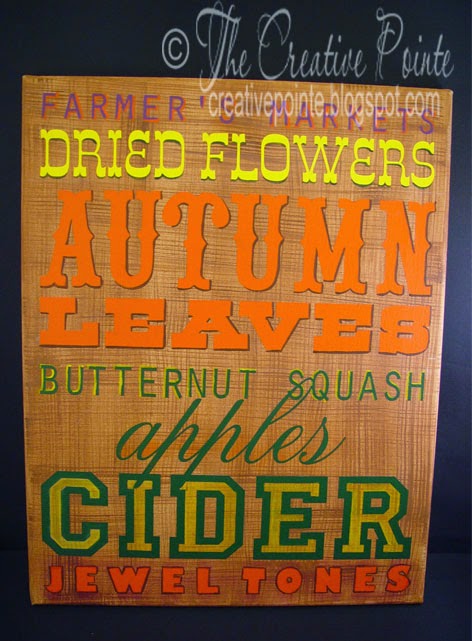 © The Creative Pointe
creativepointe.blogspot.com
FARMER'S MARKETS
DRIED FLOWERS
AUTUMN
LEAVES
BUTTERNUT SQUASH
apples
CIDER
JEWEL TONES